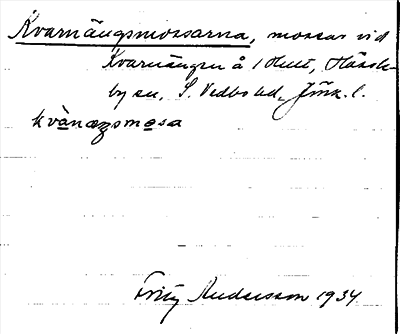 Kvarnängsmossarna, mossar vid
Kvarnängen å 1 Hult, Hässle-
by sn, S. Vedbo hd, Jönk. l.
kvànæŋsmosa
Fritz Andersson 1934